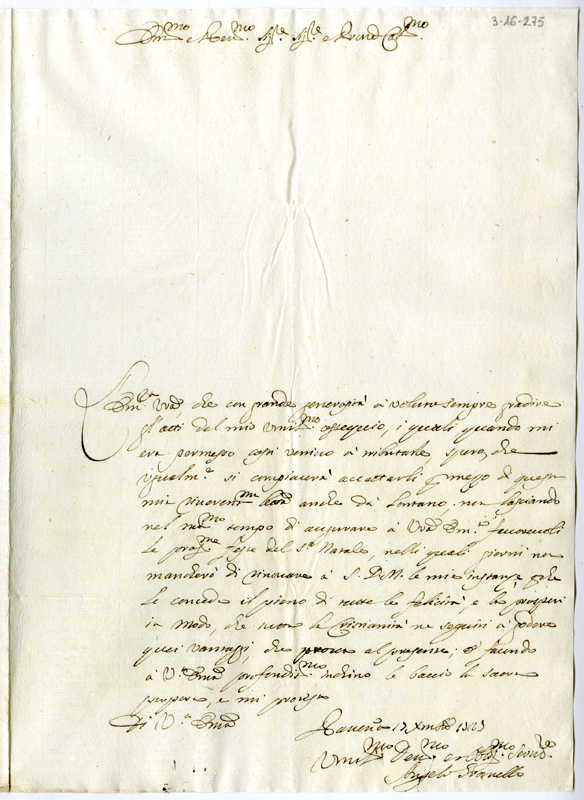 3-16-275
Em.mo e Rev.mo Sig.re Sig.re e Prone Col.mo
Em.za V.ra, che con grande generosità à voluto sempre gradire
gl'atti del mio umil.mo ossequio, i quali quando mi
era permesso ogni venivo à tributarle spero, che
ugualm.e si compiacerà accettarli p mezzo di questa
mia anche da lontano, non lasciando
nel mede.mo tempo di augurare à V.ra Em.za favorevoli
le pross.me feste del S.to Natale, nelli quali giorni non
mancherò di rinovare à S. D. M. le mie instanze, che
le conceda il pieno di tutte le felicità, e la prosperi
in modo, che tutta la Cristianità ne seguiti à godere
quei vantaggi, che al presente; e facendo
à V.ra Em.za profondis.mo inchino le baccio la sacra
porpora, e mi protesto
Di V.ra Em.za
Ravenna 13 Xmbre
Umil.mo Dev.mo et Obl.mo Serv.re
Angelo